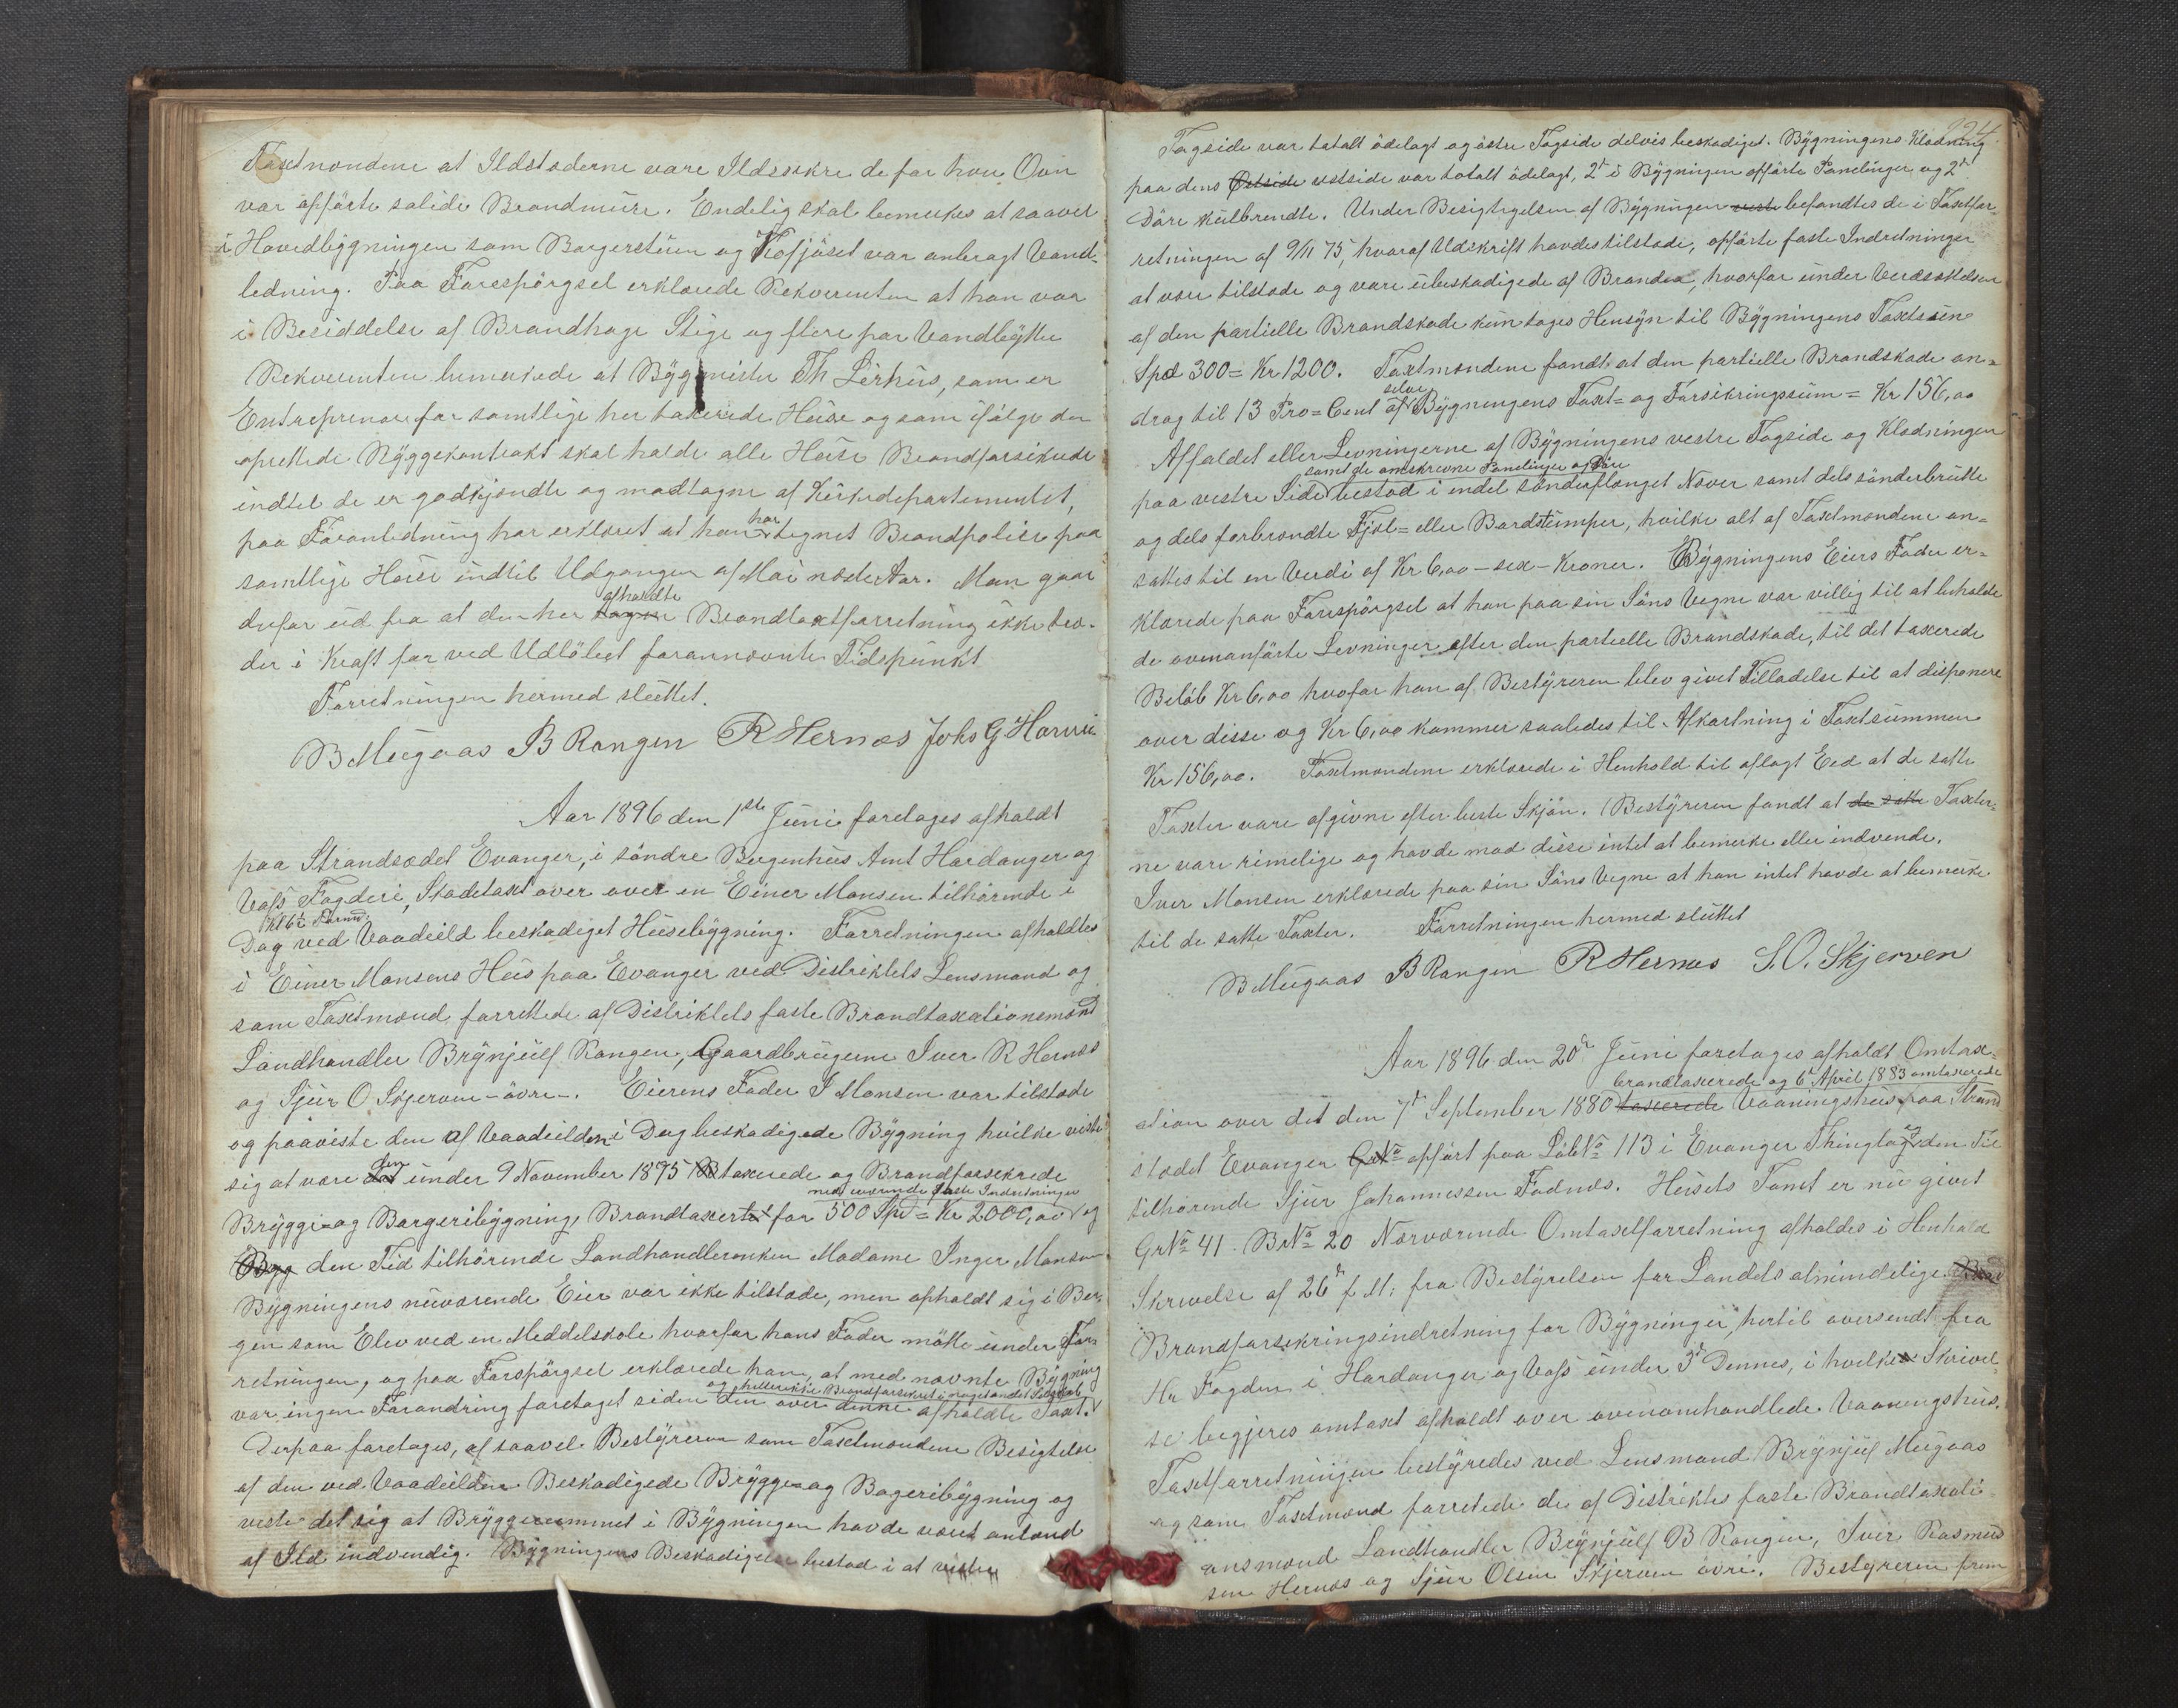 Taxtmændene at Ildstæderne vare Ildssikre da for hver Ovn
var opførte solide Brandmure. Endelig skal bemerkes at saavel
i Hovedbygningen som Borgerstuen og Kofjöset var anbragt Vand-
ledning. Paa Forespörgsel erklærede Rekvirenten at han var
i Besiddelse af Brandhage Stige og flere par Vandbøtter
Rekvirenten bemerkede at Bygmester Th Lirhus, som er
Entreprenör for samtlige her taxerede Huse og som ifølge den
oprettede Byggekontrakt skal holde alle Huse Brandforsikrede
indtil de er godkjendte og modtagne af Kirkedepartementet,
paa Foranledning har erklæret at han har tegnet Brandpolice paa
samtlige Huse indtil Udgangen af Mai næste Aar. Man gaar
derfor ud fra at den her tagne afholdte Brandtaxtforretning ikke træ-
der i Kraft før ved Udløbet forannævnte Tidspunkt
Forretningen hermed sluttet.
B Mugaas B Rongen R Hernæs Johs G Horvei
Aar 1896 den 1ste Juni foretages afholdt
paa Strandsædet Evanger, i söndre Bergenhus Amt Hardanger og
Voss Fogderi, Skadetaxt over over en Einer Monsen tilhörende i
Kl 6t Formd:
Dag ved Vaadeild beskadiget Husebygning. Forretningen afholdtes
i Einer Monsens Hus paa Evanger ved Distriktets Lensmand og
som Taxtmænd forrettede af Distriktets faste Brandtaxationsmænd
Landhandler Brynjulf Rongen, Gaardbrugerne Iver R Hernæs
og Sjur O Skjerven - övre -. Eierens Fader I Monsen var tilstede
og paaviste den af Vaadeilden i Dag beskadigede Bygning hvilke viste
sig at være det den under 9 November 1875 B taxerede og Brandforsikrede
nedværende faste Indretninger
Brygge- og Borgeribygning, Brandtaxerte for 500 Spd = Kr 2000,00 og
Bygg den Tid tilhörende Landhandlerenken Madame Inger Monsen
Bygningens nuværende Eier var ikke tilstede, men opholdt sig i Ber-
gen som Elev ved en Meddelskole hvorfor hans Fader mötte under For-
retningen, og paa Forspörgsel erklærede han, at med nævnte Bygning
og hellerikke Brandforsikret i noget andet Selskab
var ingen Forandring foretaget siden den over denne afholdte Taxt.
Derpaa foretoges, af saavel Bestyreren som Taxtmændene Besigtelse
af den ved Vaadeilden Beskadigede Brygge- og Bageribygning og
viste det sig at Bryggerummet i Bygningen havde været antænd
af Ild indvendig. Bygningens Beskadigelse bestod i at vestre
224
Tagside var totalt ödelagt og östre Tagside delvis beskadiget. Bygningens Klædning
paa dens Østside vestside var totalt ödelagt, 2de i Bygningen opførte Panelinger og 2de
Döre kulbrendte. Under Besigtigelsen af Bygningen befandtes de i Taxtfor-
retningen af 9/11 75, hvoraf Udskrift havdes tilstede, opførte faste Indretninger
at være tilstede og vare ubeskadigede af Branden, hvorfor under Verdsættelsen
af den partielle Brandskade kun toges Hensyn til Bygningens Taxtsum
Spd 300 = Kr 1200. Taxtmændene fandt at den partielle Brandskade an-
drog til 13 Pro=Cent af selve Bygningens Taxt= og Forsikringssum = Kr 156,00
Affaldet eller Levningerne af Bygningens vestre Tagside og Klædningen
samt de omskrevne Panelinger og Döre
paa vestre Side bestod i endel sönderflænget Næver samt dels sönderbrutte
og dels forbrændte Fjæl= eller Bordstumper, hvilke alt af Taxtmændene an-
sattes til en Verdi af Kr 6,00 - sex - Kroner. Bygningens Eiers Fader er-
klærede paa Forespörgsel at han paa sin Söns Vegne var villig til at beholde
de ovenanførte Levninger efter den partielle Brandskade, til det taxerede
Beløb Kr 6,00 hvofor han af Bestyreren blev givet Tilladelse til at disponere
over disse og Kr 6,00 kommer saaledes til Afkortning i Taxtsummen
Kr 156,00. Taxtmændene erklærede i Henhold til aflagt Eed at de satte
Taxter vare afgivne efter beste Skjön. Bestyreren fandt at de satte Taxter-
ne vare rimelige og havde mod disse intet at bemerke eller indvende.
Iver Monsen erklærede paa sin Söns Vegne at han intet havde at bemerke
til de satte Taxter. Forretningen hermed sluttet
B Mugaas B Rongen R Hernæs S. O. Skjerven
Aar 1896 den 20de Juni foretages afholdt Omtax-
brandtaxerede og 6te April 1883 omtaxerede
ation over det den 7de September 1880 taxerede Vaaningshus paa Strand
stædet Evanger GrNo opført paa LøbNo 113 i Evanger Thinglag og den Tid
tilhörende Sjur Johannessen Fadnæs. Husets Tomt er nu givet
GrNo 41 BNo 20 Nærværende Omtaxtforretning afholdes i Henhold
Skrivelse af 26de f. M. fra Bestyrelsen for Landets almindelige Bran
Brandforsikringsindretning for Bygninger", hertil oversendt fra
Hr Fogden i Hardanger og Voss under 3de Dennes, i hvilken Skrivel-
se begjeres omtaxt afholdt over ovenomhandlede Vaaningshus.
Taxtforretningen bestyredes ved Lensmand Brynjulf Mugaas
og som Taxtmænd forretede de af Distriktes faste Brandtaxati-
onsmænd Landhandler Brynjulf B Rongen, Iver Rasmus
sen Hernæs og Sjur Olsen Skjerven övre. Bestyreren frem